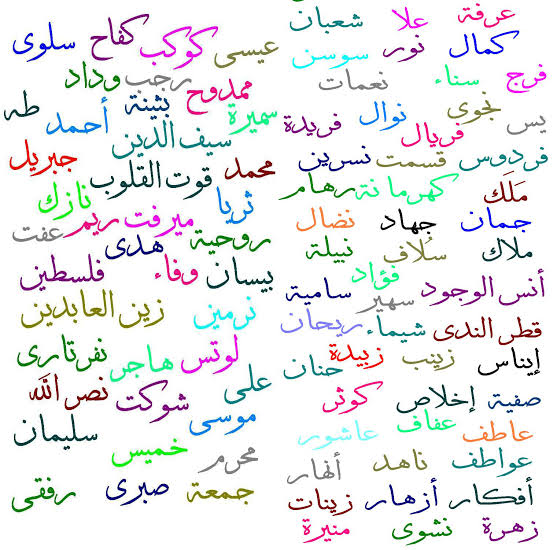 عرفة علا شعبان
كمال نور سوسن
فرج سناء نعمات
نجوى نوال
يس فريال فريدة
فردوس قسمت نسرين
مَلَك كهرمانة رهام
جمان جهاد نضال
ملاك سُلاف نبيلة
فؤاد
أنس الوجود سهير سامية
قطر الندى شيماء ريحان
إيناس زينب زبيدة حنان
صفية إخلاص كوثر
عاطف عفاف عاشور
عواطف ناهد أنهار
أفكار أزهار زينات
زهرة نشوى منيرة
عيسى كوكب كفاح سلوى
رجب وداد
ممدوح بثينة طه
سميرة أحمد
سيف الدين
محمد قوت القلوب جبريل
ثريا نازك
ميرفت ريم عفت
روحية هدى
بيسان وفاء فلسطين
نرمين زين العابدين
لوتس هاجر نفرتارى
على نصر الله
شوكت
موسى سليمان
محرم خميس
جمعة صبرى رفقى